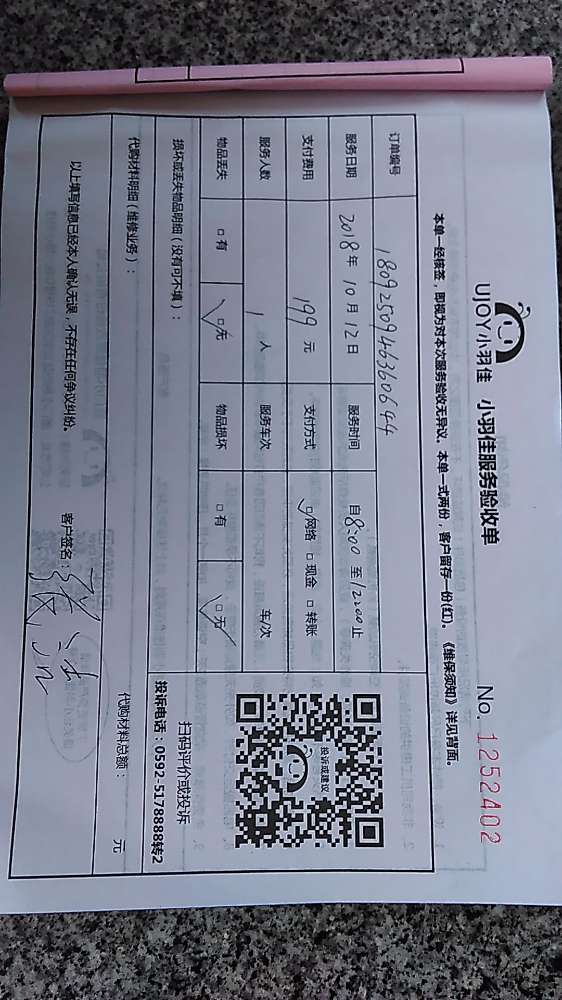 UJOY小羽佳 小羽佳服务验收单 No. 1252402
本单一经核签，即视为对本次服务验收无异议。本单一式两份，客户留存一份(红)。《维保须知》详见背面。
订单编号 1809250946360644
服务日期 2018年10月12日 服务时间 自8:00至12:00止
支付费用 199元 支付方式 ☑网络 □现金 □转账
服务人数 1人 服务车次 车/次
物品丢失 □有 ☑无 物品损坏 □有 ☑无
投诉或建议
扫码评价或投诉
投诉电话：0592-5178888转2
损坏或丢失物品明细（没有可不填）：
代购材料明细（维修业务）： 代购材料总额： 元
以上填写信息已经本人确认无误，不存在任何争议纠纷。 客户签名：